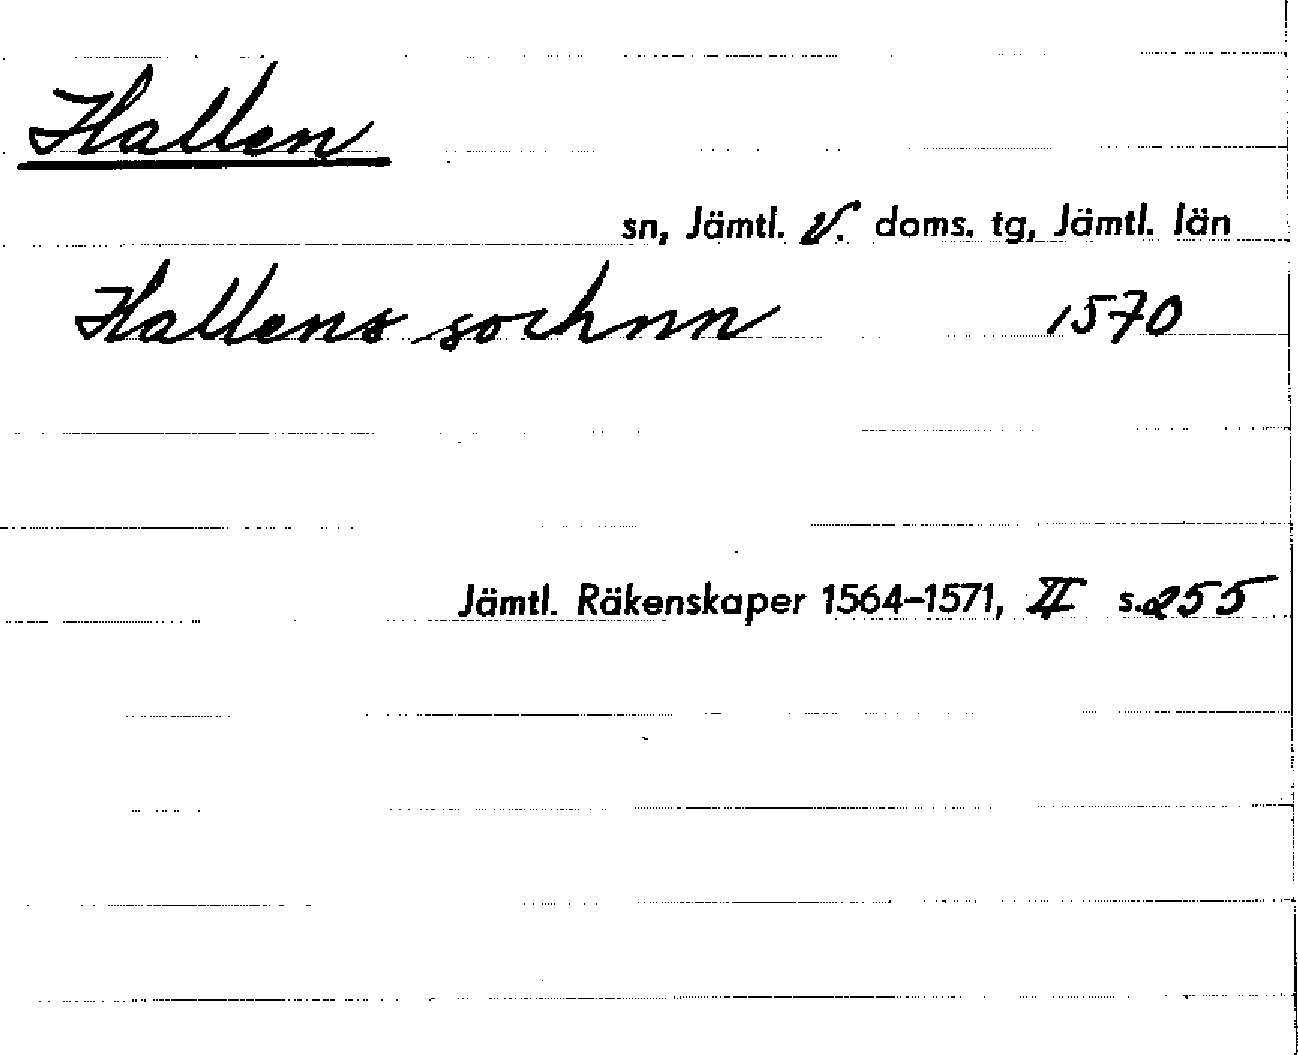 Hallen
sn, Jämtl. V. doms. tg, Jämtl. län
Hallens sochnn 1570
Jämtl. Räkenskaper 1564-1571, II s. 255